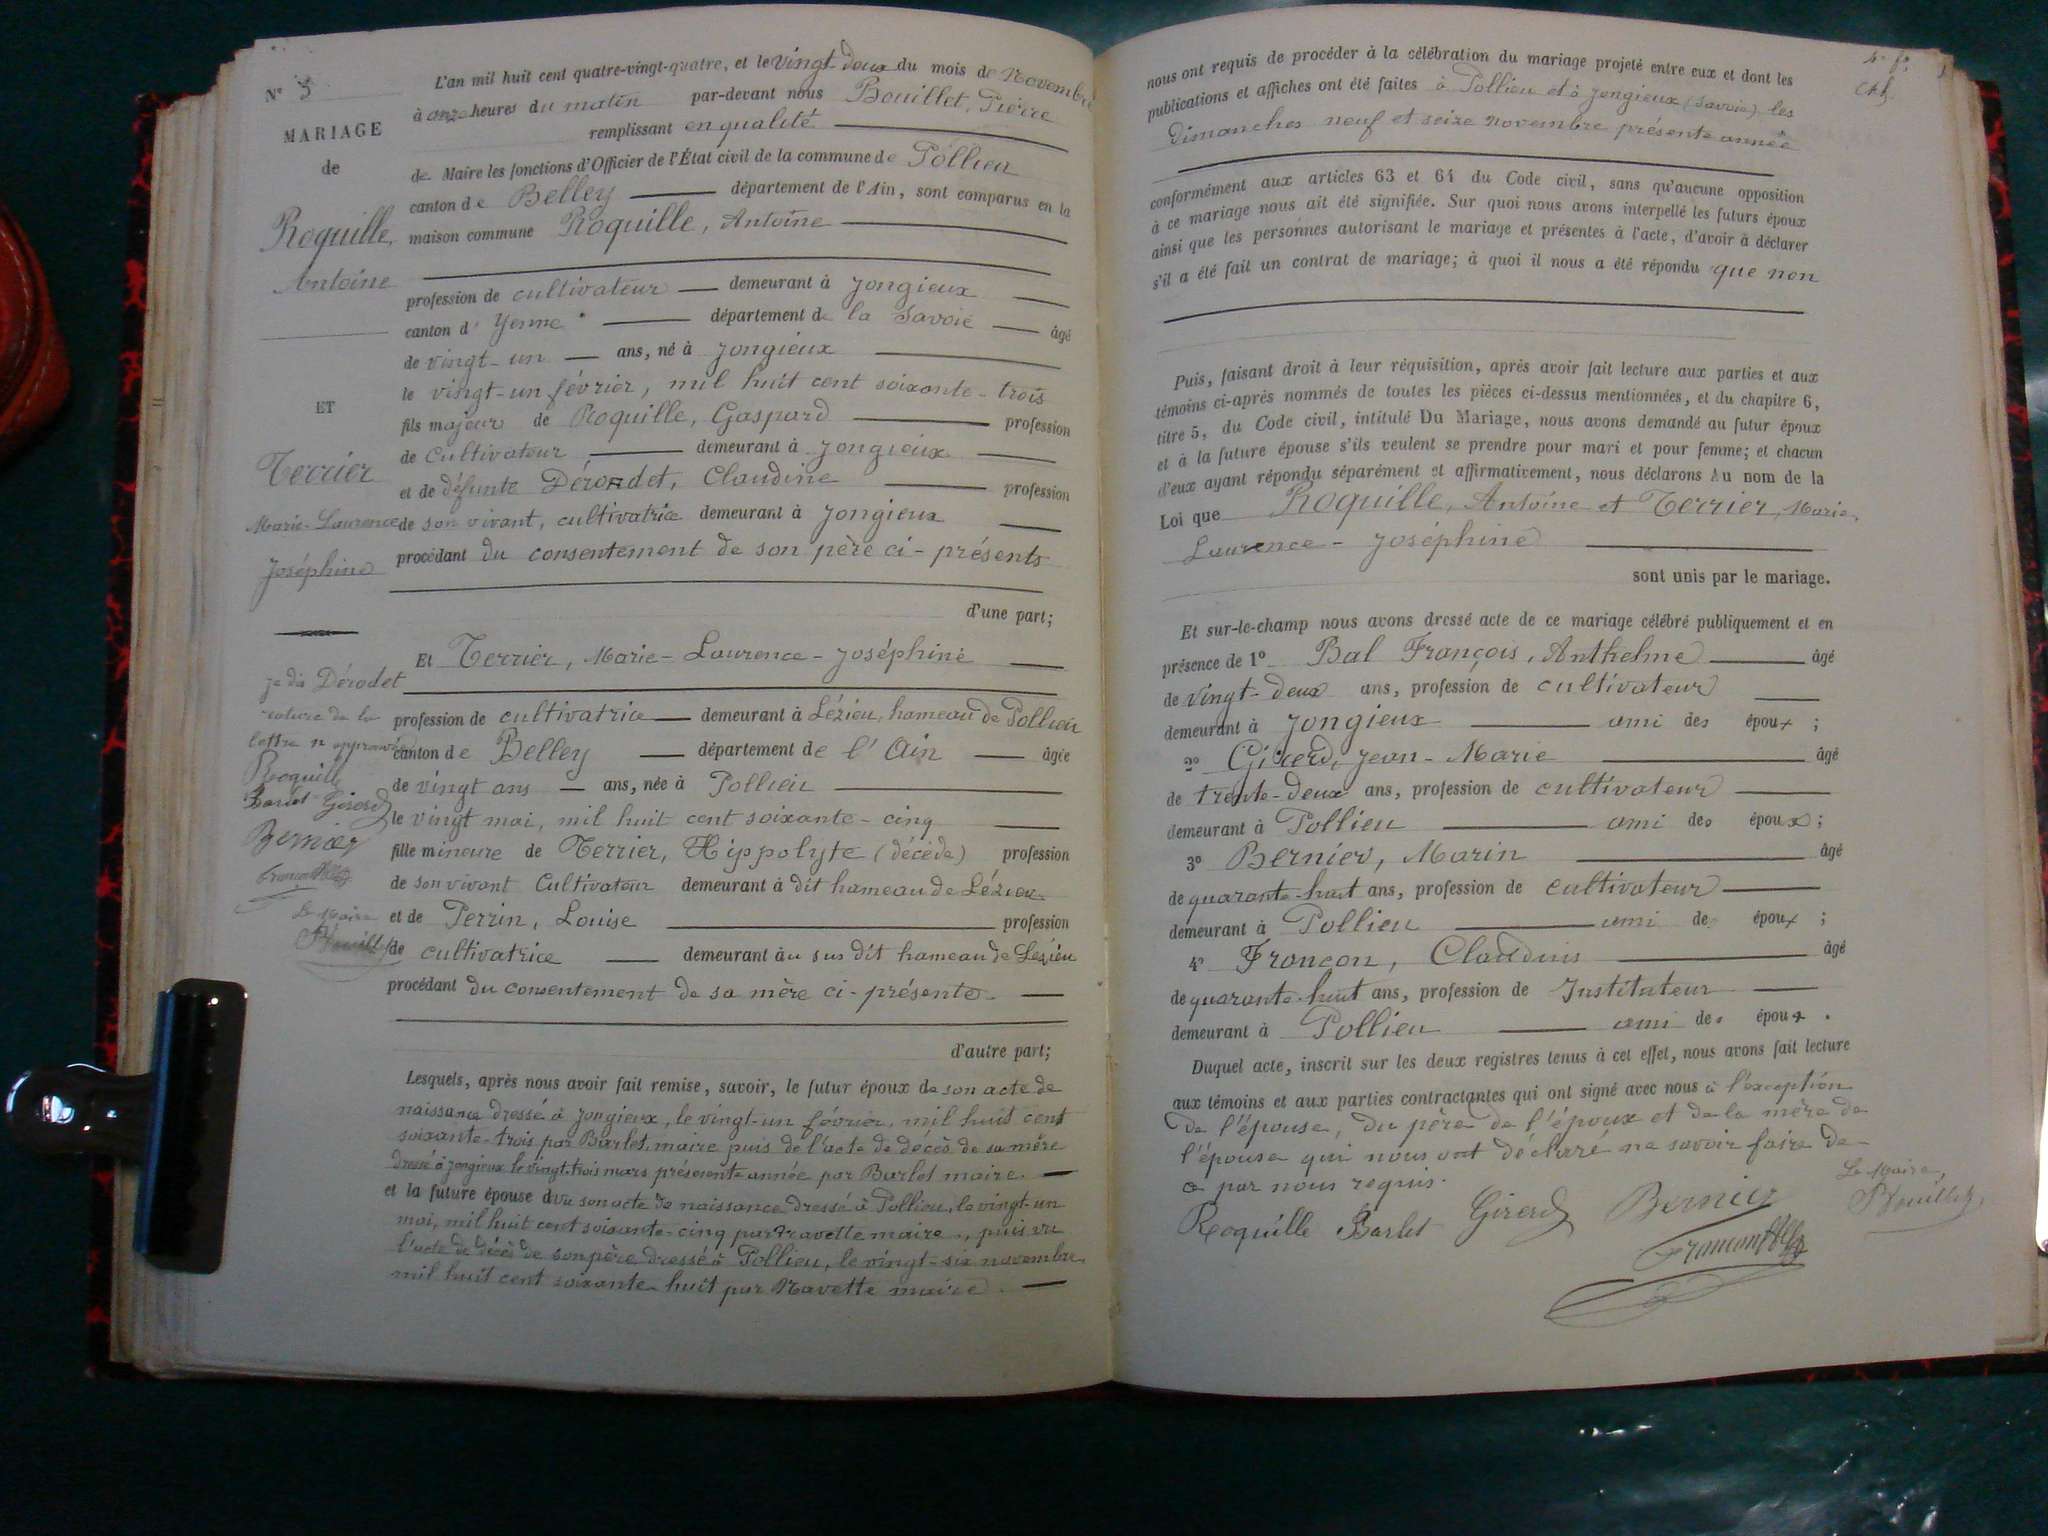 N° 5
MARIAGE
de
Roquille,
Antoine
ET
Terrier
Marie-Laurence
Joséphine
je dis Dérodet
rature de la
lettre n approuvée
Roquille
Barlet Girerd
Bernier
Le Maire
L'an mil huit cent quatre-vingt-quatre, et le vingt deux du mois de Novembre
à onze heures du matin par-devant nous Bouillet, Pierre
remplissant en qualité
de Maire les fonctions d'Officier de l'État civil de la commune de Pollieu
canton de Belley département de l'Ain, sont comparus en la
maison commune Roquille, Antoine
profession de cultivateur demeurant à Jongieux
canton d' Yenne département de la Savoie âgé
de vingt-un ans, né à Jongieux
le vingt-un février, mil huit cent soixante-trois
fils majeur de Roquille, Gaspard profession
de cultivateur demeurant à Jongieux
et de défunte Dérodet, Claudine profession
de son vivant, cultivatrice demeurant à Jongieux
procédant du consentement de son père ci-présents
d'une part;
Et Terrier, Marie-Laurence-Joséphine
profession de cultivatrice demeurant à Lézieu, hameau de Pollieu
canton de Belley département de l'Ain âgée
de vingt ans ans, née à Pollieu
le vingt mai, mil huit cent soixante-cinq
fille mineure de Terrier, Hippolyte (décédé) profession
de son vivant Cultivateur demeurant à dit hameau de Lézieu
et de Perrin, Louise profession
de cultivatrice demeurant au sus dit hameau de Lézieu
procédant du consentement de sa mère ci-présente
d'autre part;
Lesquels, après nous avoir fait remise, savoir, le futur époux de son acte de
naissance dressé à Jongieux, le vingt-un février, mil huit cent
soixante-trois par Barlet, maire puis de l'acte de décès de sa mère
dressé à Jongieux le vingt-trois mars présente année par Barlet maire.
et la future épouse vu son acte de naissance dressé à Pollieu, le vingt-un
mai, mil huit cent soixante-cinq par Navette maire, puis vu
l'acte de décès de son père dressé à Pollieu, le vingt-six novembre
mil huit cent soixante-huit par Navette maire.
nous ont requis de procéder à la célébration du mariage projeté entre eux et dont les
publications et affiches ont été faites à Pollieu et à Jongieux (Savoie) les
dimanches neuf et seize novembre présente année
conformément aux articles 63 et 64 du Code civil, sans qu'aucune opposition
à ce mariage nous ait été signifiée. Sur quoi nous avons interpellé les futurs époux
ainsi que les personnes autorisant le mariage et présentes à l'acte, d'avoir à déclarer
s'il a été fait un contrat de mariage; à quoi il nous a été répondu que non
Puis, faisant droit à leur réquisition, après avoir fait lecture aux parties et aux
témoins ci-après nommés de toutes les pièces ci-dessus mentionnées, et du chapitre 6,
titre 5, du Code civil, intitulé Du Mariage, nous avons demandé au futur époux
et à la future épouse s'ils veulent se prendre pour mari et pour femme; et chacun
d'eux ayant répondu séparément et affirmativement, nous déclarons Au nom de la
Loi que Roquille, Antoine et Terrier, Marie-
Laurence-Joséphine
sont unis par le mariage.
Et sur-le-champ nous avons dressé acte de ce mariage célébré publiquement et en
présence de 1° Bal François, Anthelme âgé
de vingt-deux ans, profession de cultivateur
demeurant à Jongieux ami des époux ;
2° Girerd, Jean-Marie âgé
de trente-deux ans, profession de cultivateur
demeurant à Pollieu ami des époux ;
3° Bernier, Marin âgé
de quarante-huit ans, profession de cultivateur
demeurant à Pollieu ami des époux ;
4° Françon, Claudius âgé
de quarante-huit ans, profession de Instituteur
demeurant à Pollieu ami des époux .
Duquel acte, inscrit sur les deux registres tenus à cet effet, nous avons fait lecture
aux témoins et aux parties contractantes qui ont signé avec nous à l'exception
de l'épouse, du père de l'époux et de la mère de
l'épouse qui nous ont déclaré ne savoir faire de
ce par nous requis.
Roquille Barlet Girerd Bernier
Le Maire,
PBouillet